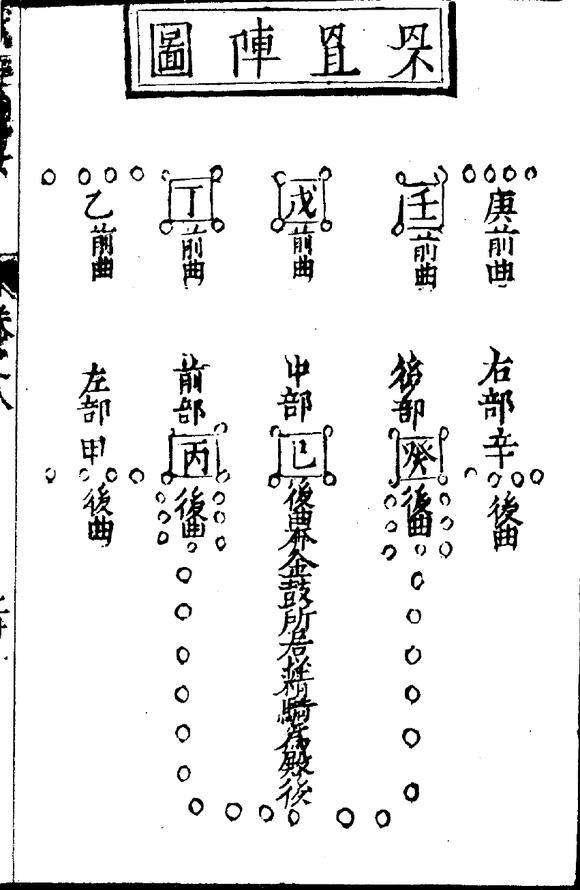 罘罝陣圖
庚前曲
壬前曲
戊前曲
丁前曲
乙前曲
右部辛後曲
後部癸後曲
中部己後曲金鼓所居精騎為殿後
前部丙後曲
左部甲後曲
卷之八